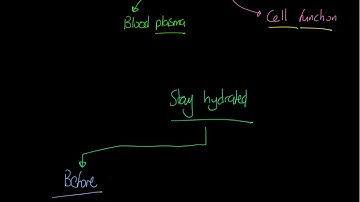 Blood plasma
Cell function
Stay hydrated
Before